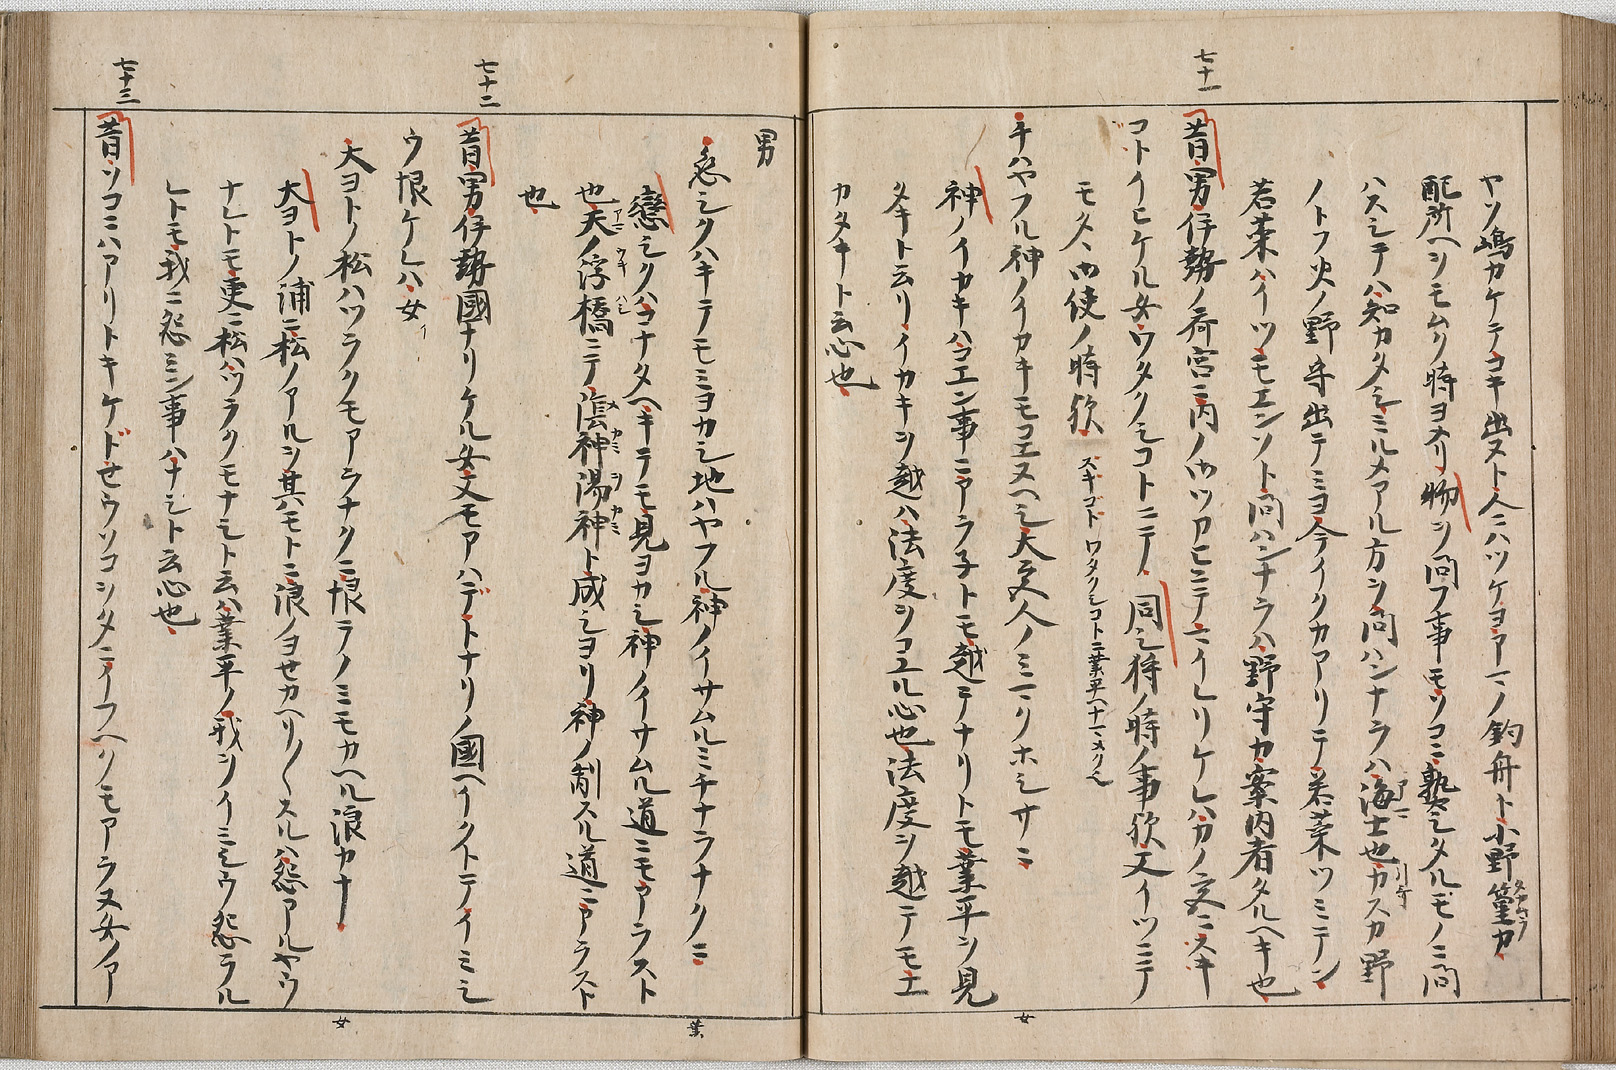 七十一
ヤソ嶋カケテコキ出ヌト人ニハツケヨアマノ釣舟ト小野篁カ
配所ヘシモムク時ヨメリ物ヲ問フ事モソコニ熟シタルモノニ問
ハスシテハ知カタシミルメアル方ヲ問ハンナラハ海士也カスカ野
ノトフ火ノ野守出テミヨ今イクカアリテ若菜ツミテン
若菜ハイツモエンソト問ハンナラハ野守カ案内者タルヘキ也
昔男伊勢ノ斎宮ニ内ノ御ツカヒニテマイレリケレハカノ宮ニスキ
コトイヒケル女ワタクシコトニテ同シ狩ノ時ノ事歟又イツニテ
モタヽ御使ノ時歟 スキゴト ワタクシコトニ業平ヘナマメク也
チハヤフル神ノイカキモコエヌヘシ大宮人ノミマクホシサニ
神ノイカキハコエン事ニアラ子トモ越テナリトモ業平ヲ見
タキト云リイカキヲ越ハ法度ヲコユル心也法度ヲ越テモエ
カタキト云心也
女
七十二
七十三
男
恋シクハキテモミヨカシ地ハヤフル神ノイサムルミチナラナクニ
戀シクハコナタヘキテモ見ヨカシ神ノイサムル道ニモアラスト
也天ノ浮橋ニテ陰神陽神ト成シヨリ神ノ制スル道ニアラスト
也
昔男伊勢國ナリケル女又モアハデトナリノ國ヘイクトテイミシ
ウ恨ケレハ女
大ヨトノ松ハツラクモアラナクニ恨ラノミモカヘル浪カナ
大ヨトノ浦ニ松ノアルヲ其ハモトニ浪ノヨセカヘリ〱スルハ怨アルヤウ
ナレトモ更ニ松ハツラクモナシト云ハ業平ノ我ヲイミシウ怨ラル
レトモ我ニ怨ミン事ハナシト云心也
昔ソコニハアリトキケドセウソコヲタニイフヘクモアラヌ女ノア
業
女